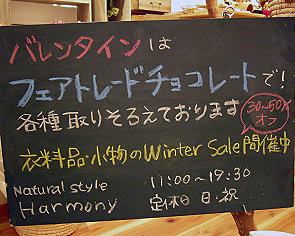 バレンタインは
フェアトレードチョコレートで!
各種取りそろえております
30~50%
オフ
衣料品・小物のWinter Sale開催中
Natural style 11:00~19:30
Harmony 定休日 日・祝